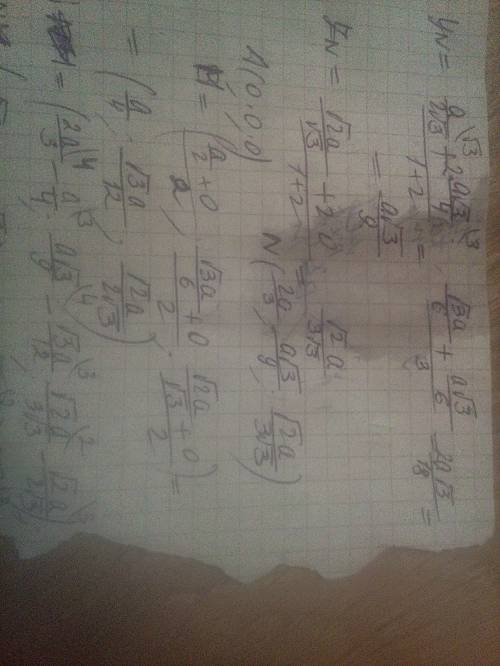 yN = (a/2√3 + 2·a√3/4)/(1+2) = (√3a/6 + a√3/6)/3 = 2a√3/18 =
= a√3/9
zN = (√2a/√3 + 2·0)/(1+2) = √2a/3√3
A(0;0;0) N(2a/3; a√3/9; √2a/3√3)
H = ((a/2+0)/2; (√3a/6+0)/2; (√2a/√3+0)/2) =
= (a/4; √3a/12; √2a/2√3)
= (2a/3 - a/4; a√3/9 - √3a/12; √2a/3√3 - √2a/2√3)